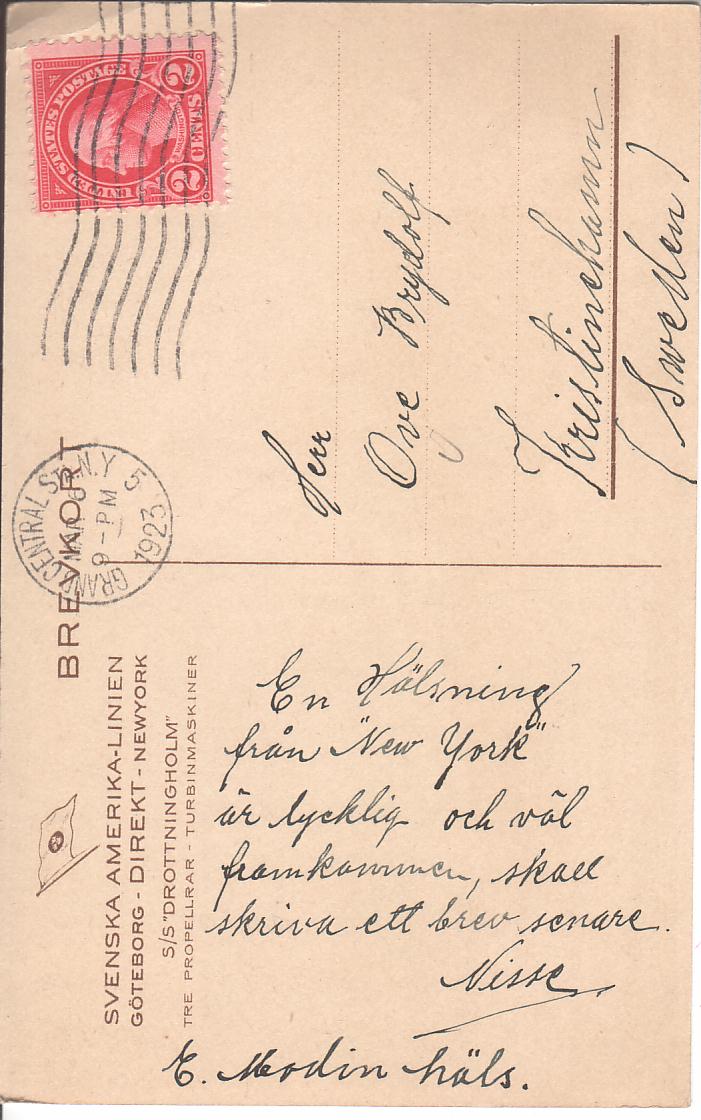 UNITED STATES POSTAGE
WASHINGTON
2 CENTS 2
GRAND CENTRAL STA. N.Y. 5
MAR 6
9-PM
1923
BREVKORT
SVENSKA AMERIKA-LINIEN
GÖTEBORG - DIREKT - NEWYORK
S/S "DROTTNINGHOLM"
TRE PROPELLRAR - TURBINMASKINER
Herr
Ove Brydolf
Kristinehamn
(Sweden)
En Hälsning
från "New York"
är lycklig och väl
framkommen, skall
skriva ett brev senare.
Nisse
E. Modin häls.